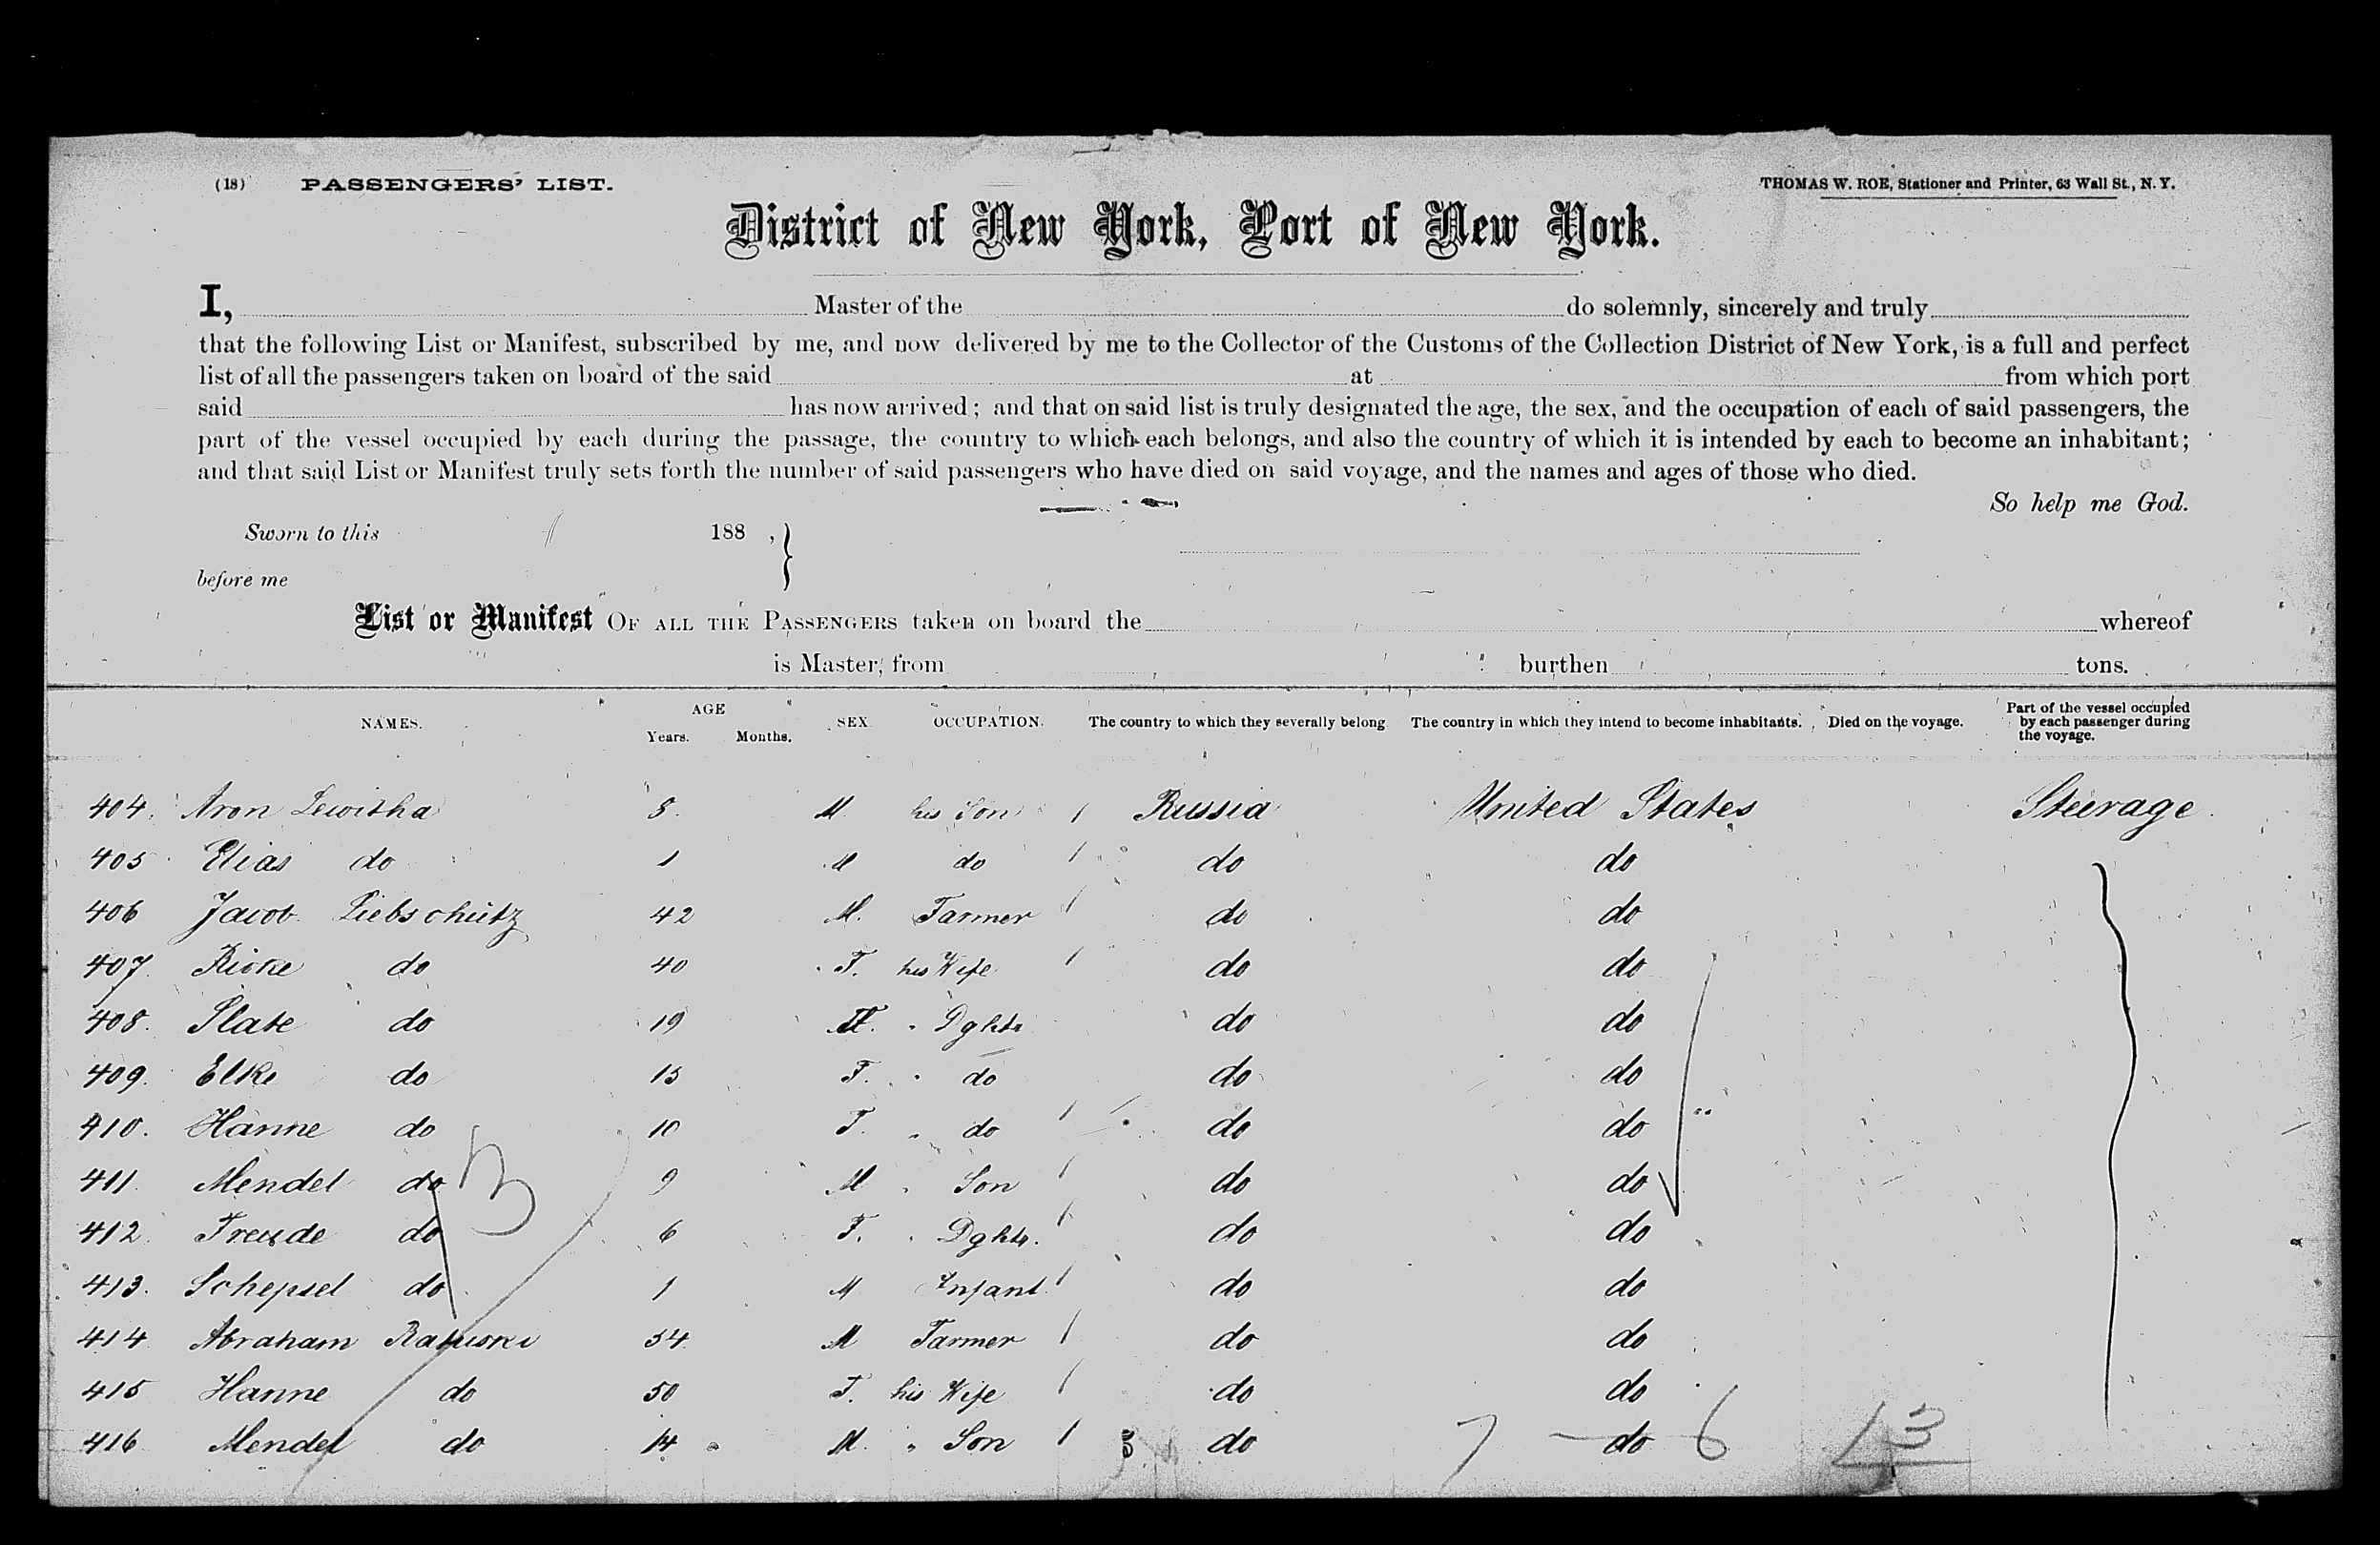 (18) PASSENGERS' LIST. THOMAS W. ROE, Stationer and Printer, 63 Wall St., N. Y.
District of New York, Port of New York.
I, Master of the do solemnly, sincerely and truly
that the following List or Manifest, subscribed by me, and now delivered by me to the Collector of the Customs of the Collection District of New York, is a full and perfect
list of all the passengers taken on board of the said at from which port
said has now arrived; and that on said list is truly designated the age, the sex, and the occupation of each of said passengers, the
part of the vessel occupied by each during the passage, the country to which each belongs, and also the country of which it is intended by each to become an inhabitant;
and that said List or Manifest truly sets forth the number of said passengers who have died on said voyage, and the names and ages of those who died.
So help me God.
Sworn to this 188 ,
before me
List or Manifest OF ALL THE PASSENGERS taken on board the whereof
is Master, from burthen tons.
NAMES. AGE Years. Months. SEX OCCUPATION. The country to which they severally belong The country in which they intend to become inhabitants. Died on the voyage. Part of the vessel occupied by each passenger during the voyage.
404. Aron Lewitha 8. M his Son Russia United States Steerage
405 Elias do 1 M do do do
406 Jacob Liebschütz 42 M. Farmer do do
407. Rioke do 40 F. his Wife do do
408. Slate do 19 F. " Dghtr do do
409. Elke do 15 F. " do do do
410. Hanne do 10 F. " do do do
411 Mendel do 9 M " Son do do
412. Freude do 6 F. " Dghtr. do do
413. Schepsel do 1 M Infant do do
414 Abraham 54. M Farmer do do
415 Hanne do 50 F. his Wife do do
416 Mendel do 14 M. " Son do 7 - do 6 13